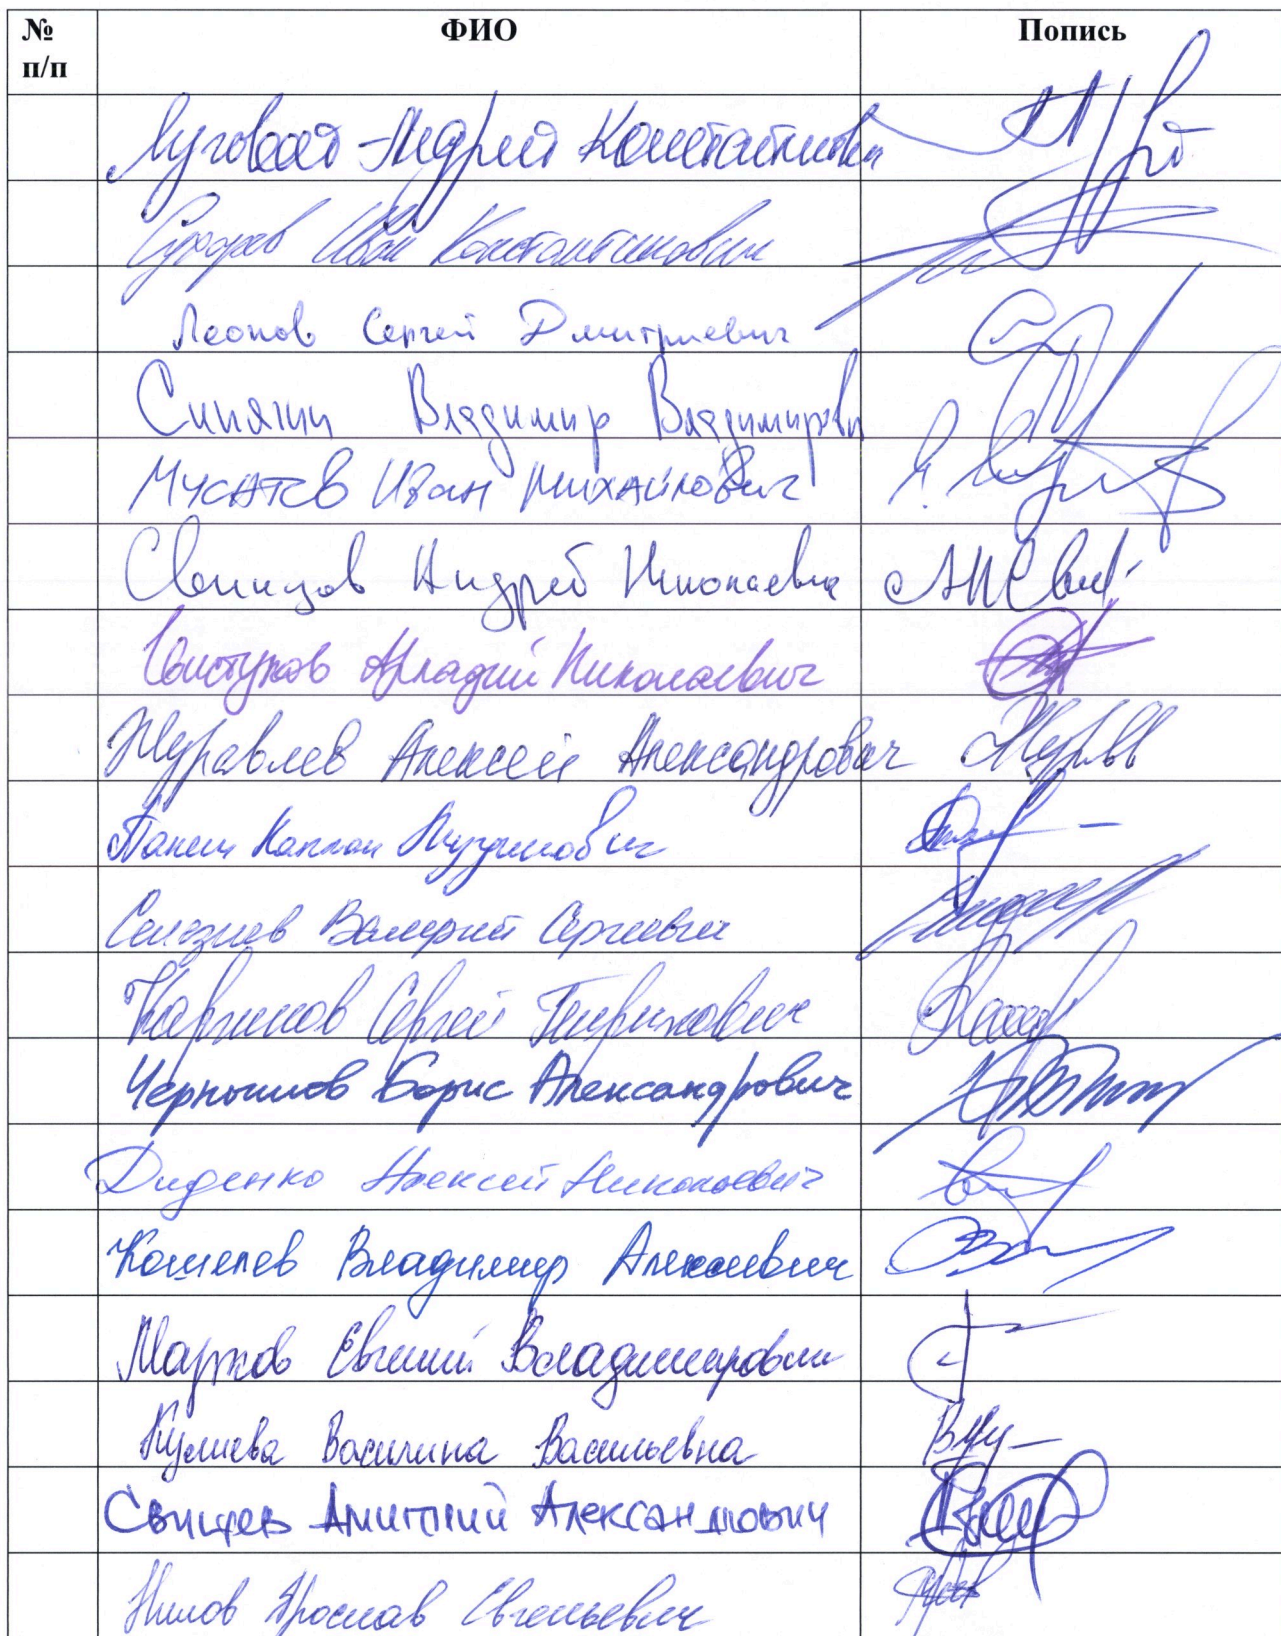 № п/п ФИО Попись
Луговой Андрей Константинови
Сухарев Иван Константинович
Леонов Сергей Дмитриевич
Синягин Владимир Владимирови
Мусатов Иван Михайлович
Свинцов Андрей Николаевич
Свистунов Аркадий Николаевич
Журавлев Алексей Александрович
Панеш Каплан Мугдинович
Селезнев Валерий Сергеевич
Каргинов Сергей Генрихович
Чернышов Борис Александрович
Диденко Алексей Николаевич
Кошелев Владимир Алексеевич
Марков Евгений Владимирович
Кулиева Василина Васильевна
Свищев Дмитрий Александрович
Нилов Ярослав Евгеньевич